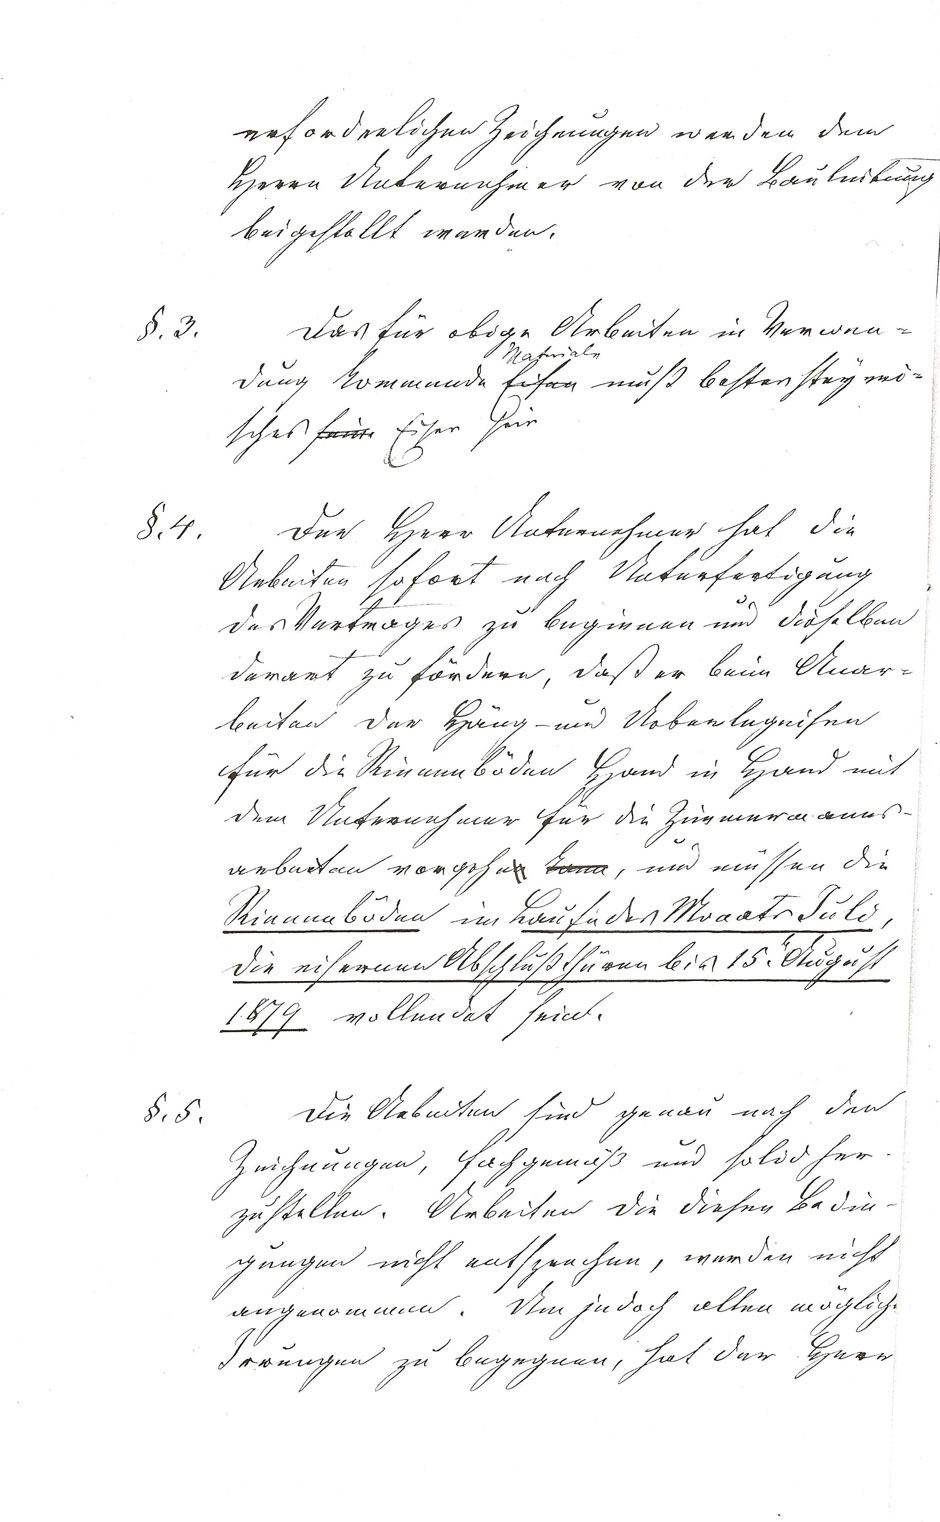 erforderlichen Zeichnungen werden dem
Herrn Unternehmer von der Bauleitung
beigestellt werden.
§. 3. Das für obige Arbeiten in Verwen=
Materiale
dung kommende Eisen muß bestes steyeri=
sches sein. Eisen sein
§. 4. Der Herr Unternehmer hat die
Arbeiten sofort nach Unterfertigung
des Vertrages zu beginnen und dieselben
derart zu fördern, daß er beim Auar=
beiten der Häng- und Ueberlegeisen
für die Rinnenböden Hand in Hand mit
dem Unternehmer für die Zimmermanns-
arbeiten vorgehen kann, und müssen die
Rinnenböden im Laufe des Monats Juli,
die eisernen Abschlußthüren bis 15. August
1879 vollendet sein.
§. 5. Die Arbeiten sind genau nach den
Zeichnungen, fachgemäß und solid her-
zustellen. Arbeiten die diesen Bedin-
gungen nicht entsprechen, werden nicht
angenommen. Um jedoch allen möglich.
Irrungen zu begegnen, hat der Herr